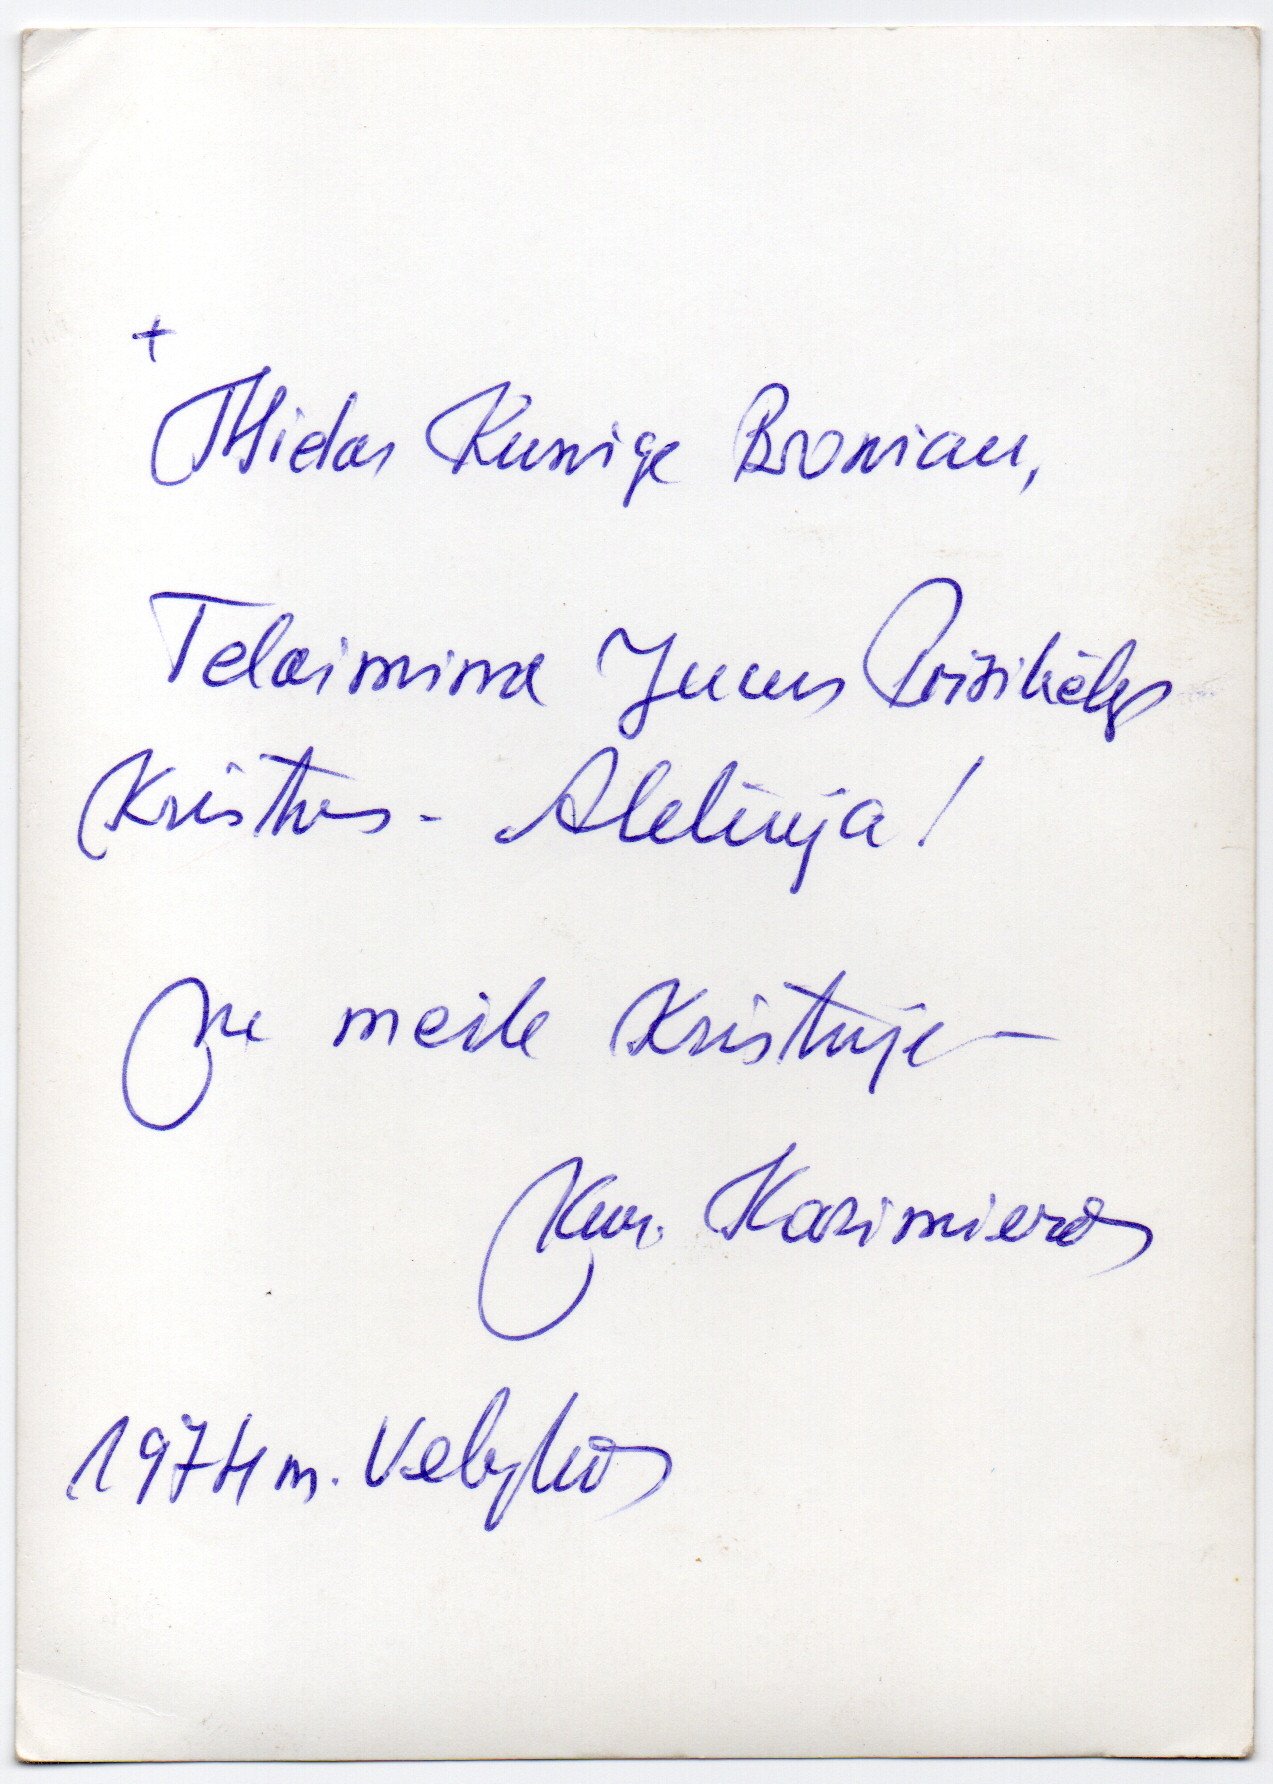 +
Mielas Kunige Broniau,
Telaimina Jumus Prisikėlęs
Kristus - Aleliuja!
Su meile Kristuje -
Kun. Kazimieras
1974 m. Velykos